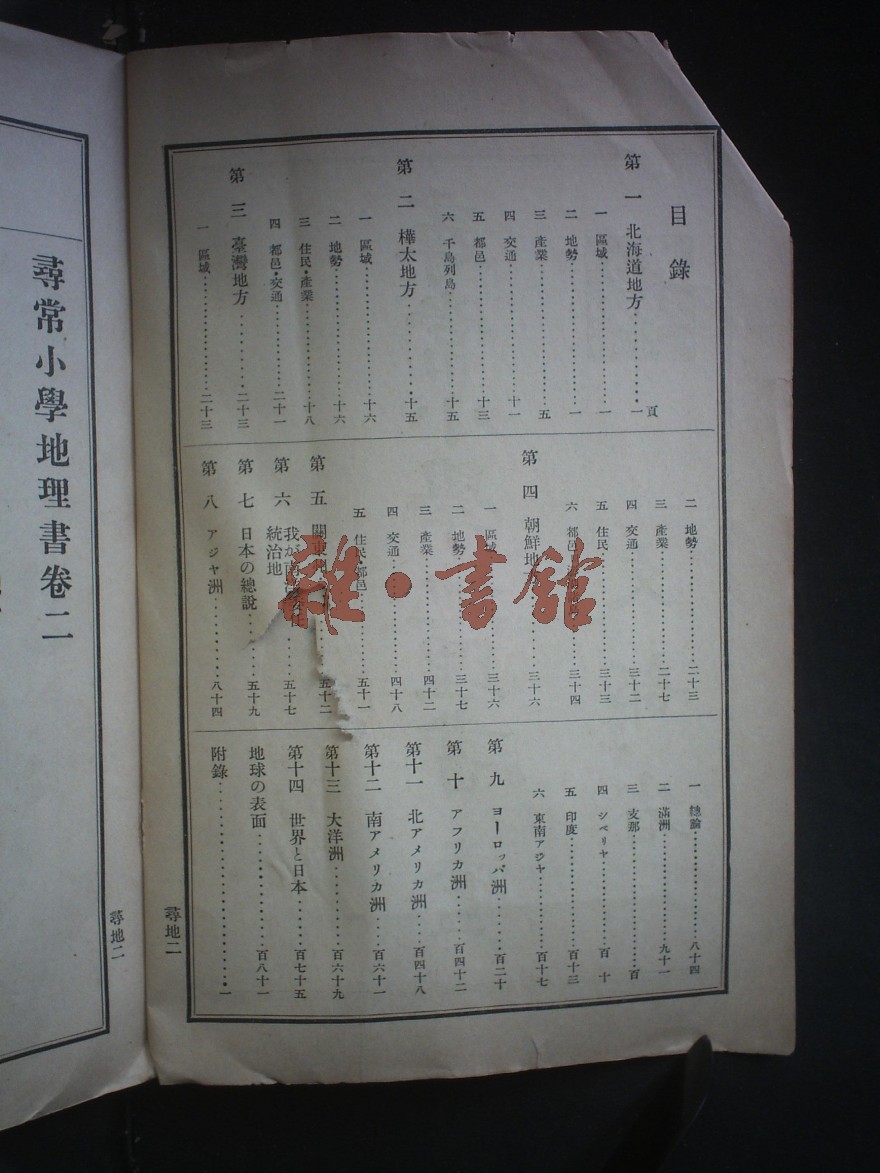 目錄
頁
第一 北海道地方………一
一 區域………一
二 地勢………一
三 產業………五
四 交通………十一
五 都邑………十三
六 千島列島………十五
第二 樺太地方………十五
一 區域………十六
二 地勢………十六
三 住民・產業………十八
四 都邑・交通………二十一
第三 臺灣地方………二十三
一 區域………二十三
二 地勢………二十三
三 產業………二十七
四 交通………三十二
五 住民………三十三
六 都邑………三十四
第四 朝鮮地………三十六
一 區域………三十六
二 地勢………三十七
三 產業………四十二
四 交通………四十八
五 住民・都邑………五十一
第五 關東………五十二
第六 我が南洋
統治地………五十七
第七 日本の總說………五十九
第八 アジヤ洲………八十四
一 總論………八十四
二 滿洲………九十一
三 支那………百
四 シベリヤ………百十
五 印度………百十三
六 東南アジヤ………百十七
第九 ヨーロッパ洲………百二十
第十 アフリカ洲………百四十二
第十一 北アメリカ洲………百四十八
第十二 南アメリカ洲………百六十一
第十三 大洋洲………百六十九
第十四 世界と日本………百七十五
地球の表面………百八十一
附錄………一
尋地二
尋常小學地理書卷二
尋地二
雜・書館